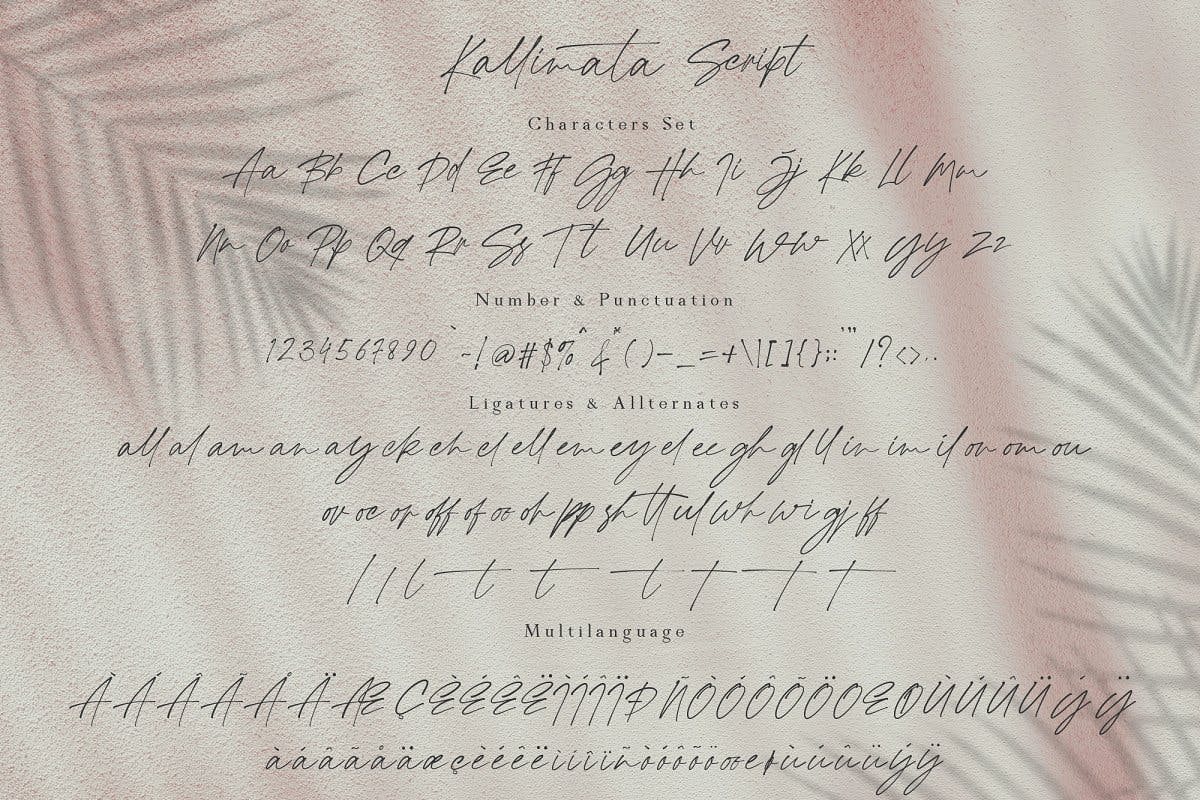 Kallimata Script
Characters Set
Aa Bb Cc Dd Ee Ff Gg Hh Ii Jj Kk Ll Mm
Nn Oo Pp Qq Rr Ss Tt Uu Vv Ww Xx Yy Zz
Number & Punctuation
1234567890 ` ~!@#$%^&*()-_=+\|[]{};:'"/?<>,.
Ligatures & Allternates
all al am an ay ck ch cl ell em ey el ee gh gl ll in im il on om ou
ov oe or off of oo oh pp sh tt ul wh wi gj ff
l l l t t t t t t
Multilanguage
ÀÁÂÃÅÄÆÇÈÉÊËÌÍÎÏÐÑÒÓÔÕÖŒØÙÚÛÜÝŸ
àáâãåäæçèéêëìíîïñòóôõöœøùúûüýÿ